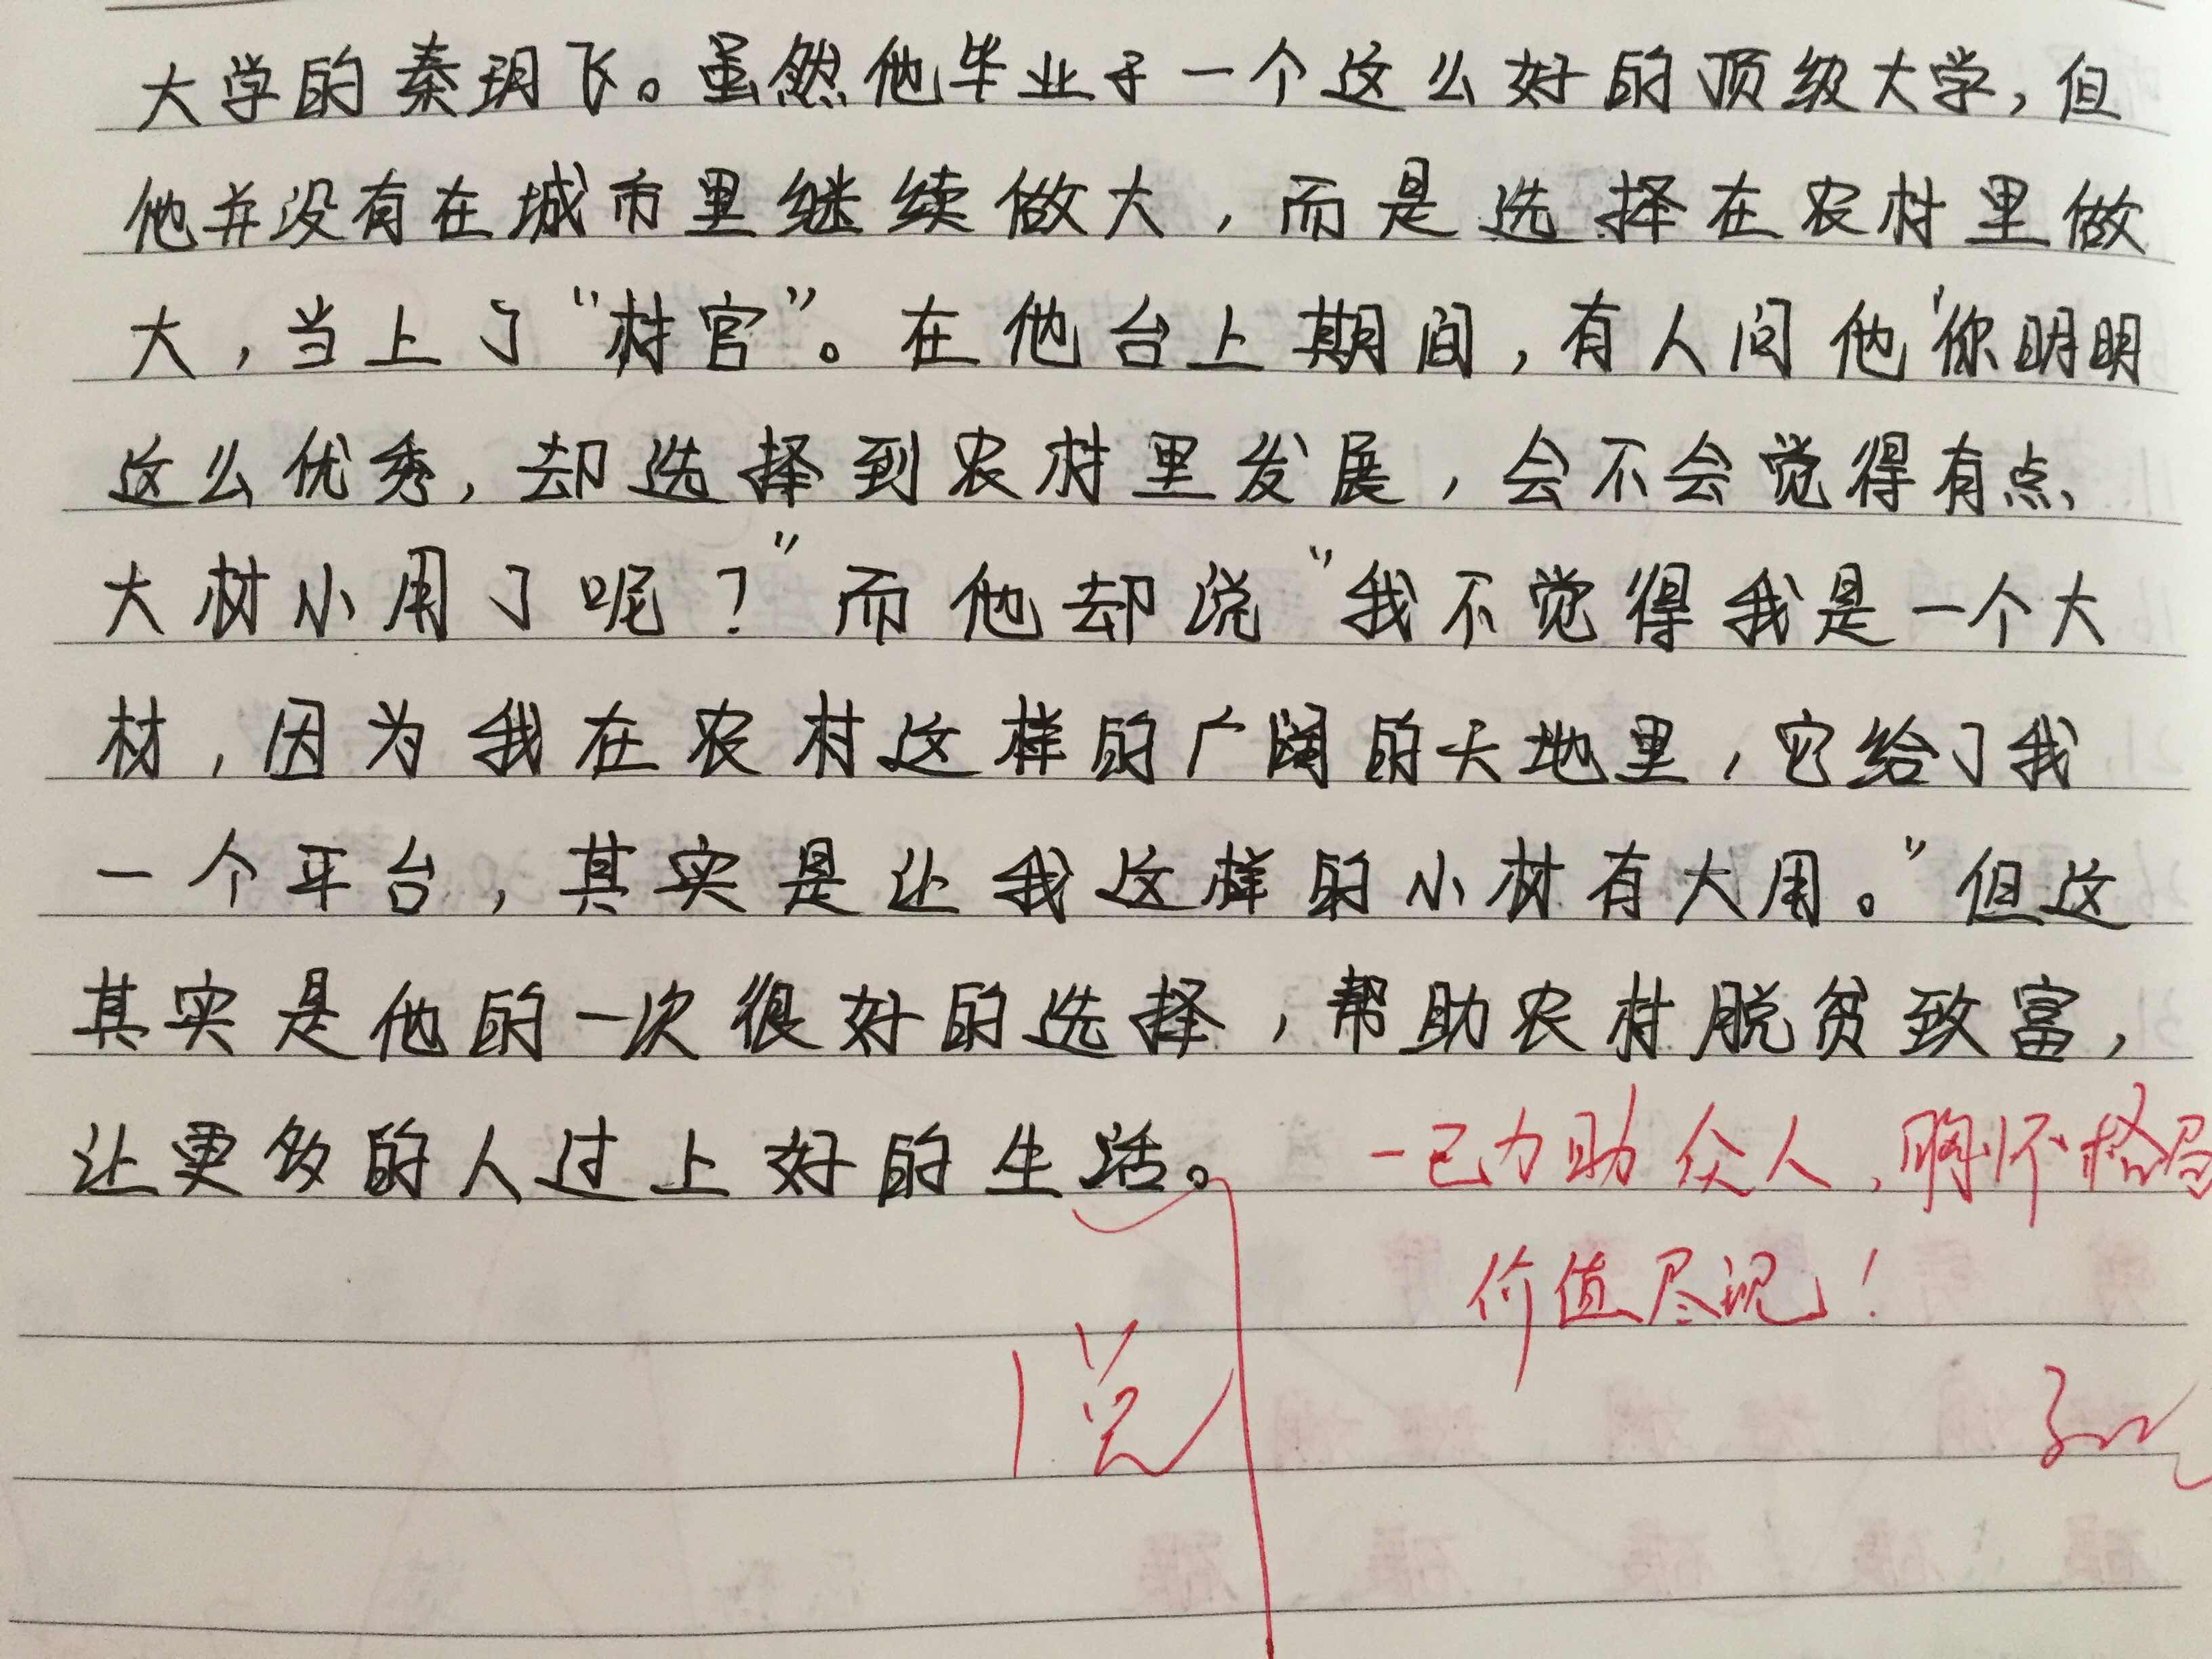 大学的秦玥飞。虽然他毕业于一个这么好的顶级大学，但
他并没有在城市里继续做大，而是选择在农村里做
大，当上了“村官”。在他台上期间，有人问他“你明明
这么优秀，却选择到农村里发展，会不会觉得有点
大材小用了呢？”而他却说“我不觉得我是一个大
材，因为我在农村这样的广阔的天地里，它给了我
一个平台，其实是让我这样的小材有大用。”但这
其实是他的一次很好的选择，帮助农村脱贫致富，
让更多的人过上好的生活。
一己力助众人，胸怀格局
价值尽现！